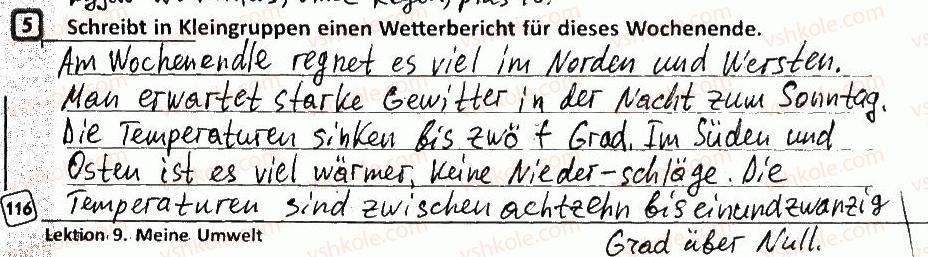 5 Schreibt in Kleingruppen einen Wetterbericht für dieses Wochenende.
Am Wochenendle regnet es viel im Norden und Wersten.
Man erwartet starke Gewitter in der Nacht zum Sonntag.
Die Temperaturen sinken bis zwö t Grad. Im Süden und
Osten ist es viel wärmer, keine Nieder-schläge. Die
116 Temperaturen sind zwischen achtzehn bis einundzwanzig
Lektion 9. Meine Umwelt
Grad über Null.